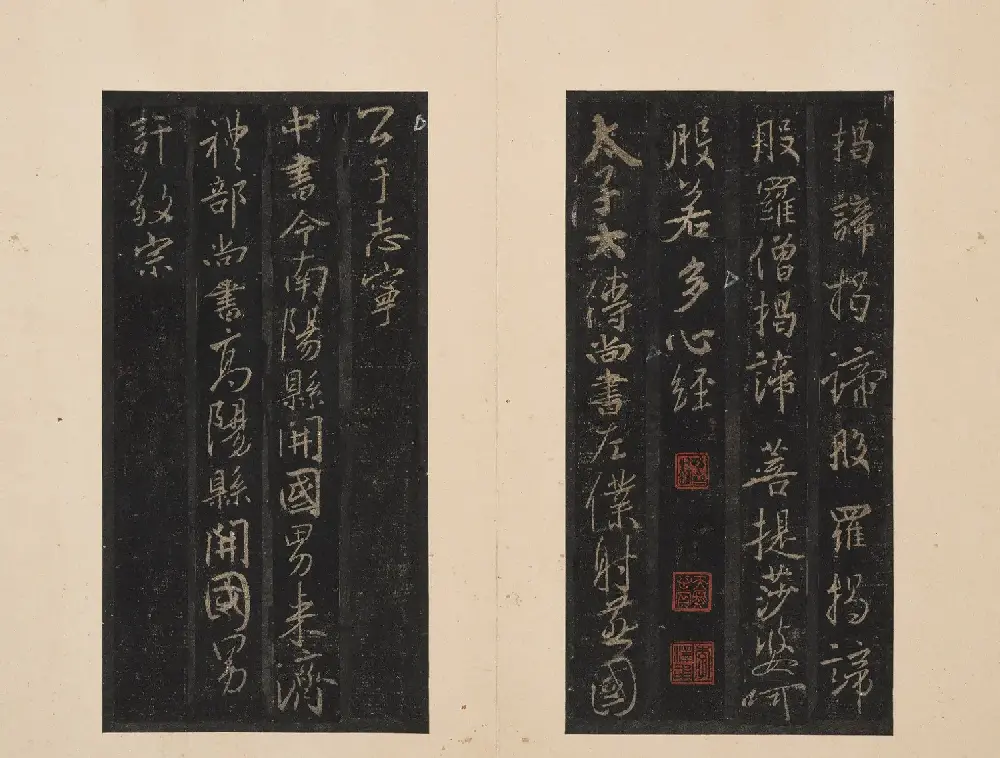 揭諦揭諦般羅揭諦
般羅僧揭諦菩提莎婆呵
般若多心經
太子太傅尚書左僕射燕國
公于志寧
中書令南陽縣開國男来濟
禮部尚書高陽縣開國男
許敬宗